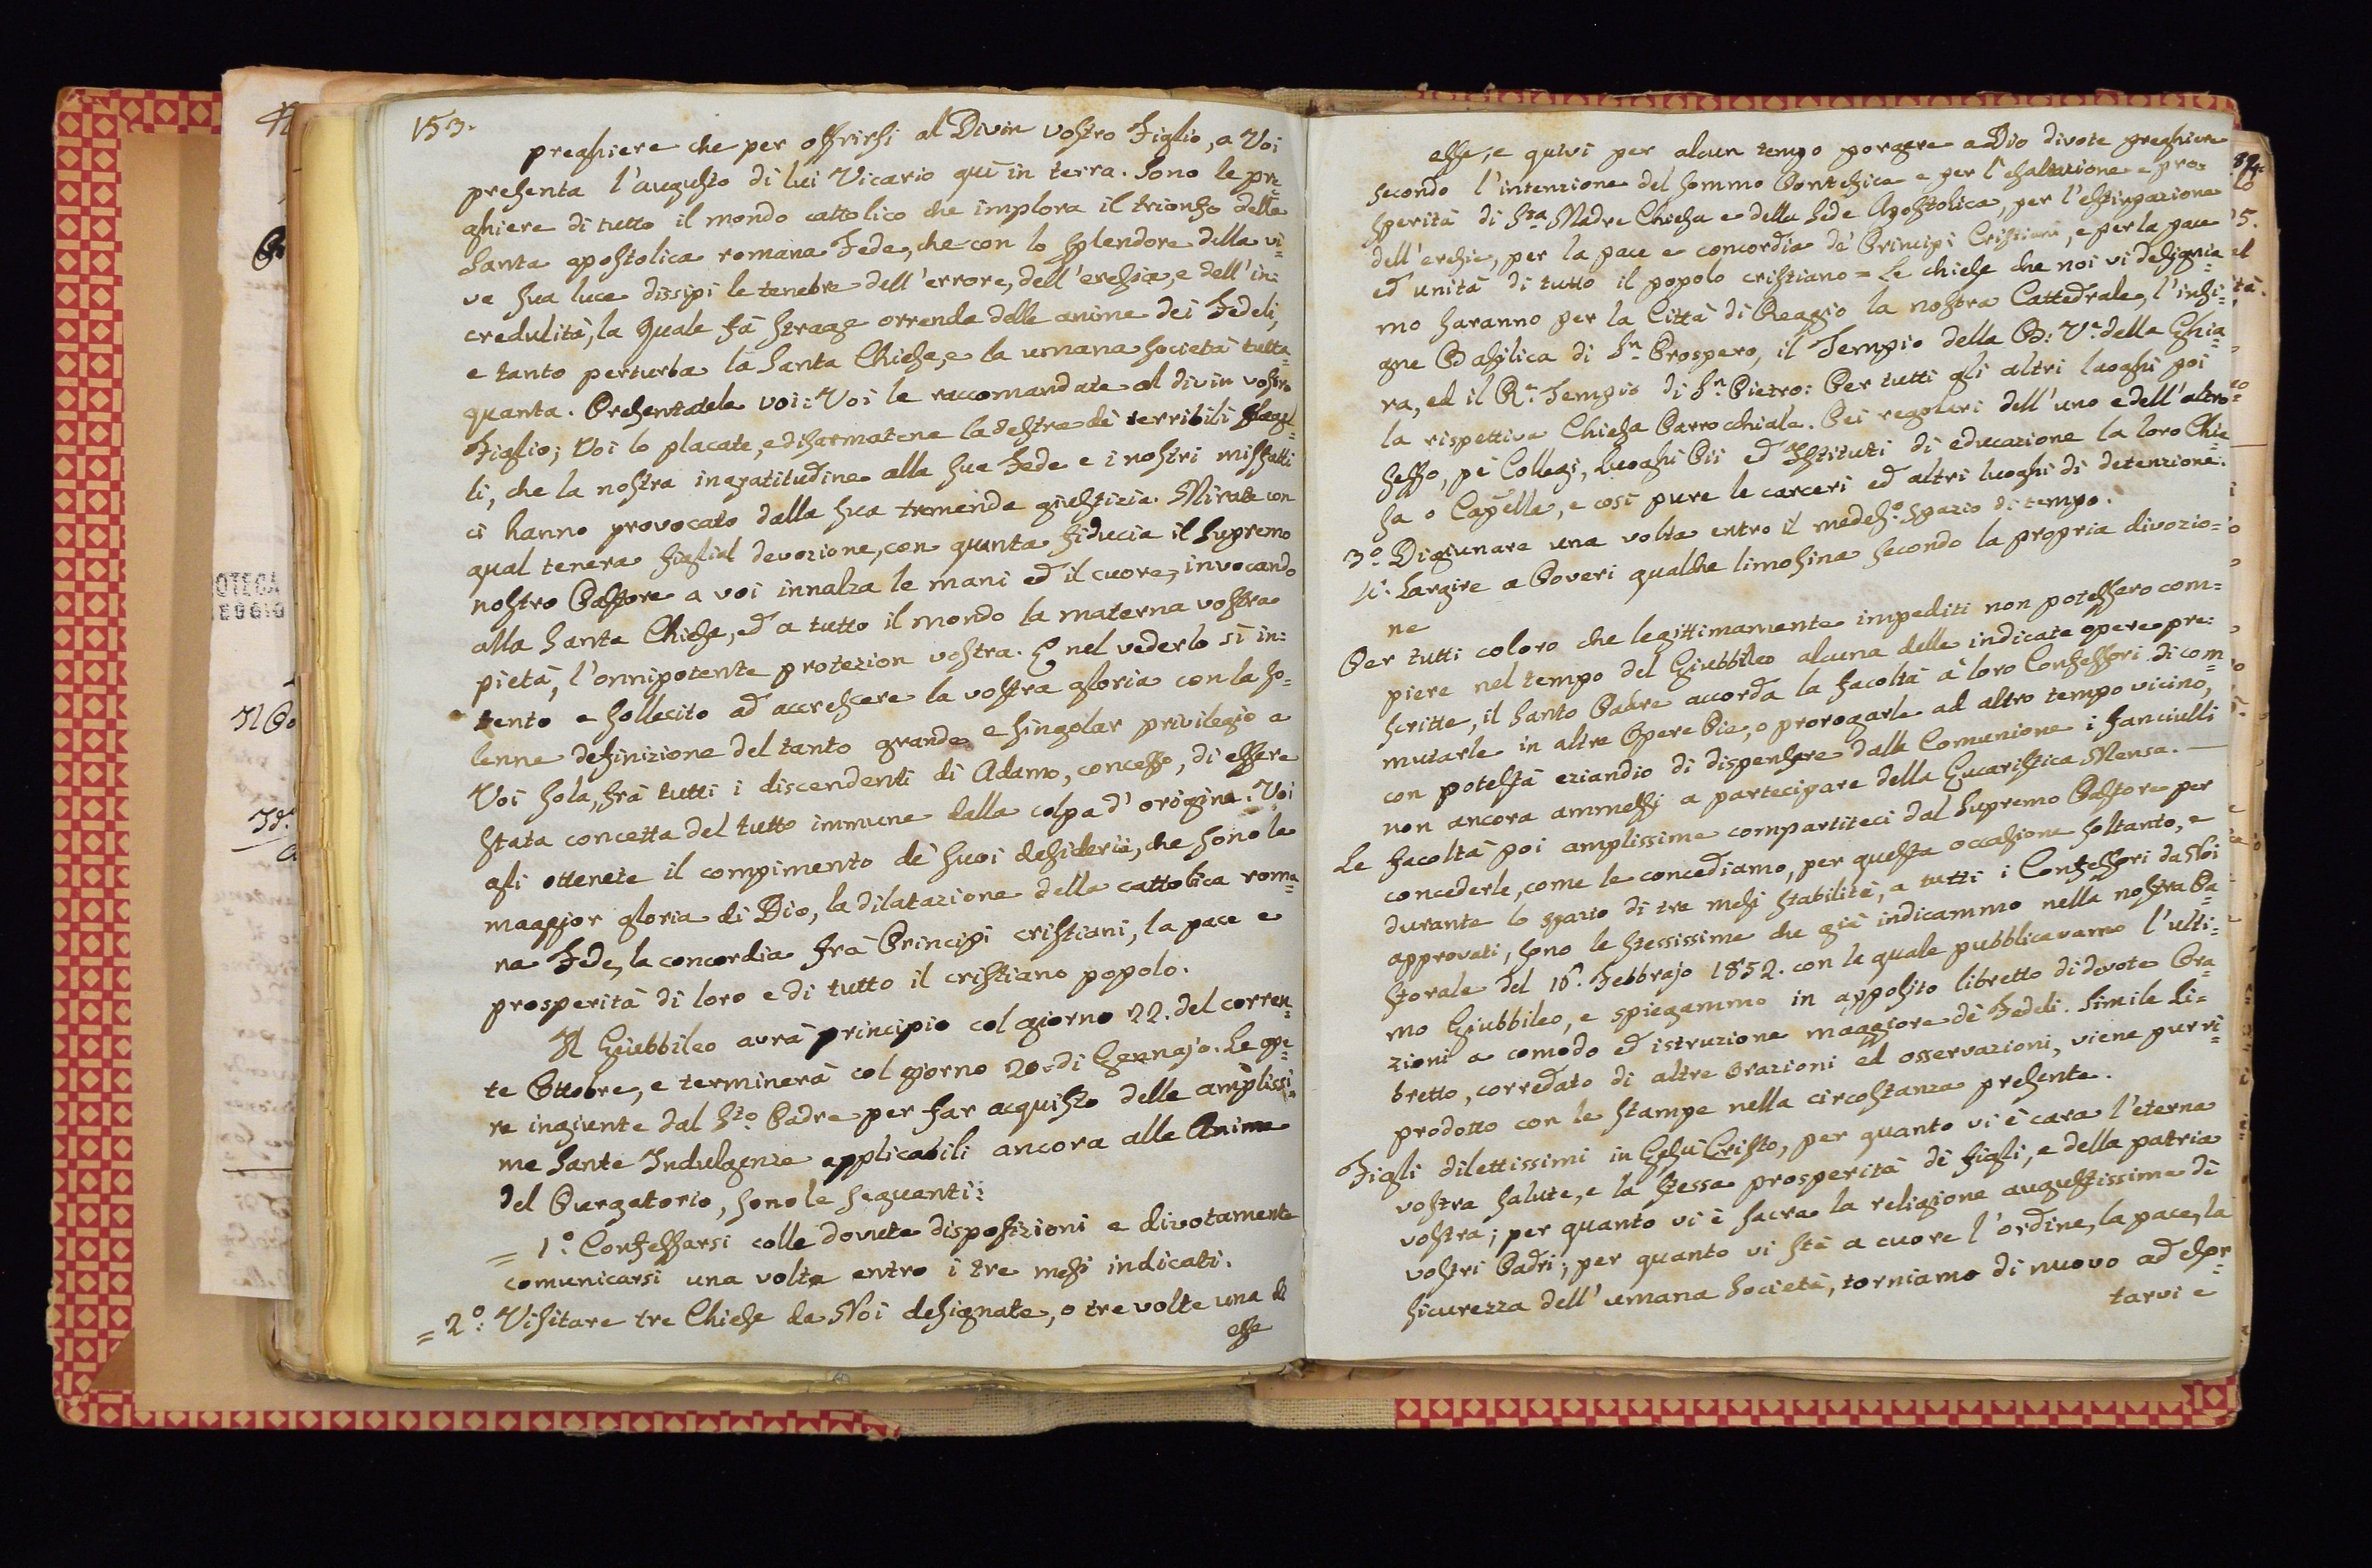 153.
preghiere che per offrirsi al Divin vostro Figlio, a Voi
presenta l'augusto di lui Vicario quì in terra. Sono le pre=
ghiere di tutto il mondo cattolico che implora il trionfo della
Santa apostolica romana Fede, che con lo splendore della vi=
va sua luce dissipi le tenebre dell'errore, dell'eresia, e dell'in=
credulità, la quale fà strage orrenda delle anime dei Fedeli,
e tanto perturba la Santa Chiesa, e la umana società tutta
quanta. Presentatele voi: Voi le raccomandate al divin vostro
Figlio; Voi lo placate, e disarmatene la destra dè terribili flagel=
li, che la nostra ingratitudine alla sua Fede e i nostri misfatti
ci hanno provocato dalla sua tremenda giustizia. Mirate con
qual tenera figlial devozione, con quanta fiducia il Supremo
nostro Pastore a voi innalza le mani ed il cuore, invocando
alla Santa Chiesa, ed a tutto il mondo la materna vostra
pietà, l'onnipotente protezion vostra. E nel vederlo sì in=
tento e sollecito ad accrescere la vostra gloria con la so=
lenne definizione del tanto grande e singolar privilegio a
Voi sola, frà tutti i discendenti di Adamo, concesso, di essere
stata concetta del tutto immune dalla colpa d'origine. Voi
gli ottenete il compimento dè suoi desiderii, che sono la
maggior gloria di Dio, la dilatazione della cattolica roma=
na Fede, la concordia frà Principi cristiani, la pace e
prosperità di loro e di tutto il cristiano popolo.
Il Giubbileo avrà principio col giorno 22. del corren=
te Ottobre, e terminerà col giorno 20. di Gennajo. Le ope=
re ingiunte dal Sto. Padre per far acquisto delle amplissi=
me Sante Indulgenze applicabili ancora alle Anime
del Purgatorio, sono le seguenti:
= 1.° Confessarsi colle dovute disposizioni e divotamente
comunicarsi una volta entro i tre mesi indicati.
= 2.° Visitare tre Chiese da Noi designate, o tre volte una di
esse
esse, e quivi per alcun tempo porgere a Dio divote preghiere
secondo l'intenzione del sommo Pontefice e per l'esaltazione e pro=
sperità di Sta. Madre Chiesa e della Sede Apostolica, per l'estirpazione
dell'eresie, per la pace e concordia dè Principi Cristiani, e per la pace
ed unità di tutto il popolo cristiano = Le chiese che noi vi designia=
mo saranno per la Città di Reggio la nostra Cattedrale, l'insi=
gne Basilica di Sn. Prospero, il Tempio della B: Ve. della Ghia=
ra, ed il Rl. Tempio di Sn. Pietro: Per tutti gli altri luoghi poi
la rispettiva Chiesa Parrocchiale. Pei regolari dell'uno e dell'altro
sesso, pè Collegi, luoghi Pii ed Istituti di educazione la loro Chie=
sa o Capella, e così pure le carceri ed altri luoghi di detenzione.
3.° Digiunare una volta entro il medes.° spazio di tempo.
4.° Largire a Poveri qualche limosina secondo la propria divozio=
ne
Per tutti coloro che legittimamente impediti non potessero com=
piere nel tempo del Giubbileo alcuna delle indicate opere pre=
scritte, il Santo Padre accorda la facoltà à loro Confessori di com=
mutarle in altre Opere Pie, o prorogarle ad altro tempo vicino,
con potestà eziandio di dispensare dalla Comunione i fanciulli
non ancora ammessi a partecipare della Eucaristica Mensa. —
Le facoltà poi amplissime compartiteci dal Supremo Pastore per
concederle, come le concediamo, per questa occasione soltanto, e
durante lo spazio di tre mesi stabilite, a tutti i Confessori da Noi
approvati, sono le stessissime che già indicammo nella nostra Pa=
storale del 16. Febbrajo 1852. con la quale pubblicavamo l'ulti=
mo Giubbileo, e spiegammo in apposito libretto di devote Ora=
zioni a comodo ed istruzione maggiore dè Fedeli. Simile Li=
bretto, corredato di altre orazioni ed osservazioni, viene pur ri=
prodotto con le stampe nella circostanza presente.
Figli dilettissimi in Gesù Cristo, per quanto vi è cara l'eterna
vostra salute, e la stessa prosperità di figli, e della patria
vostra; per quanto vi è sacra la religione augustissima dè
vostri Padri; per quanto vi stà a cuore l'ordine, la pace, la
sicurezza dell'umana società, torniamo di nuovo ad esor=
tarvi e